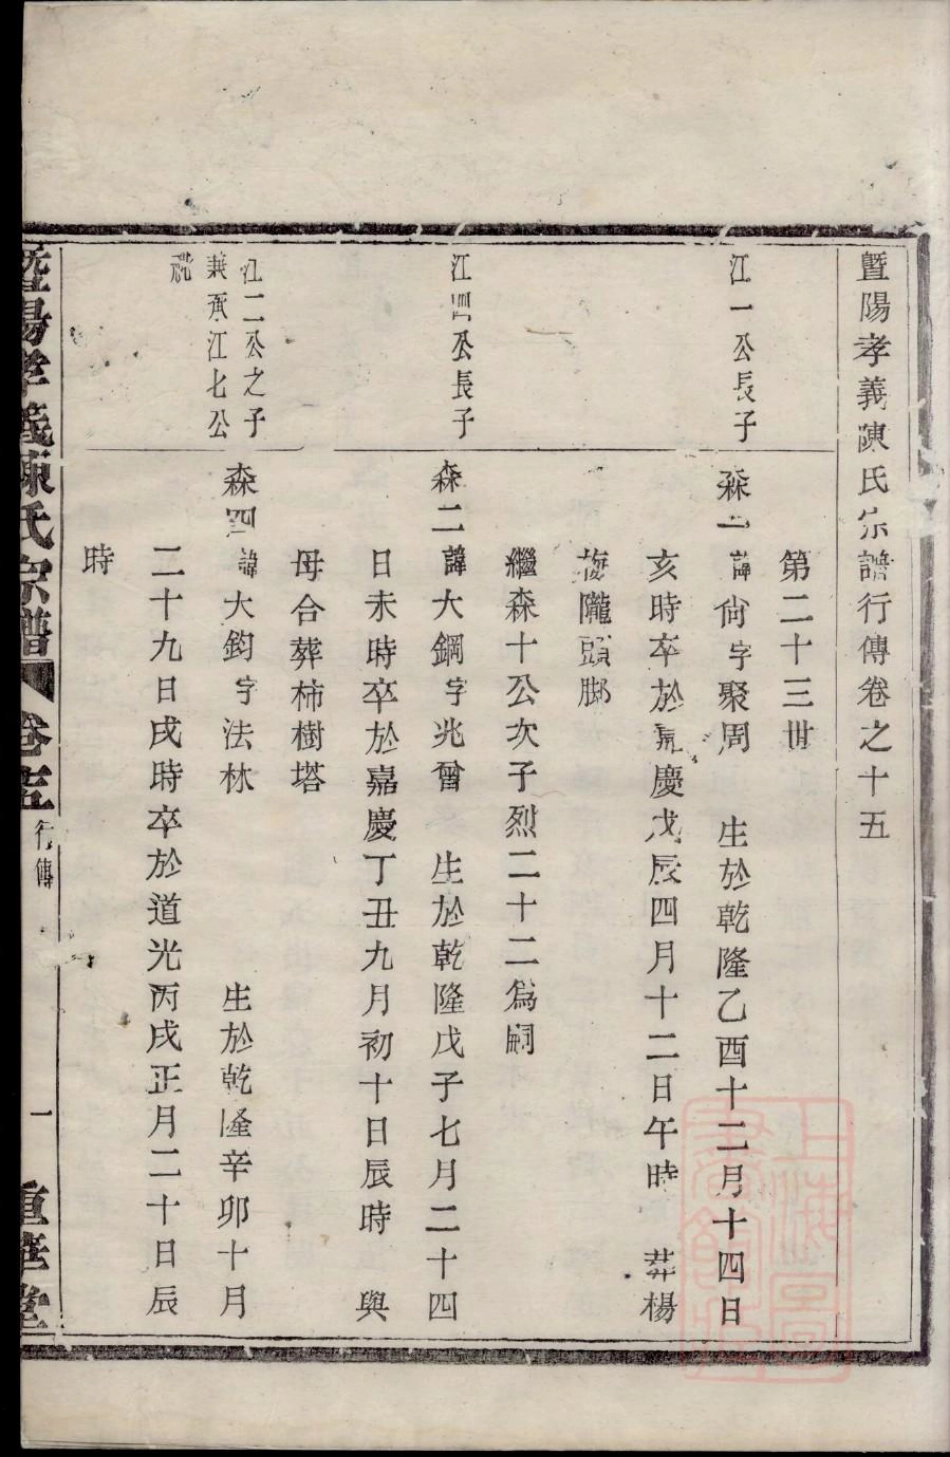 暨陽孝義陳氏宗譜行傳卷之十五
第二十三世
江一公長子
森一諱尙字聚周 生於乾隆乙酉十二月十四日
亥時卒於嘉慶戊辰四月十二日午時 葬楊
梅隴頭脚
繼森十公次子烈二十二爲嗣
江四公長子
森二諱大鋼字兆曾 生於乾隆戊子七月二十四
日未時卒於嘉慶丁丑九月初十日辰時 與
母合葬柿樹塔
江二公之子
兼承江七公
祧
森四諱大鈞字法林 生於乾隆辛卯十月
二十九日戌時卒於道光丙戌正月二十日辰
時
暨陽孝義陳氏宗譜 卷十五 行傳 一 重華堂
上海圖書館藏